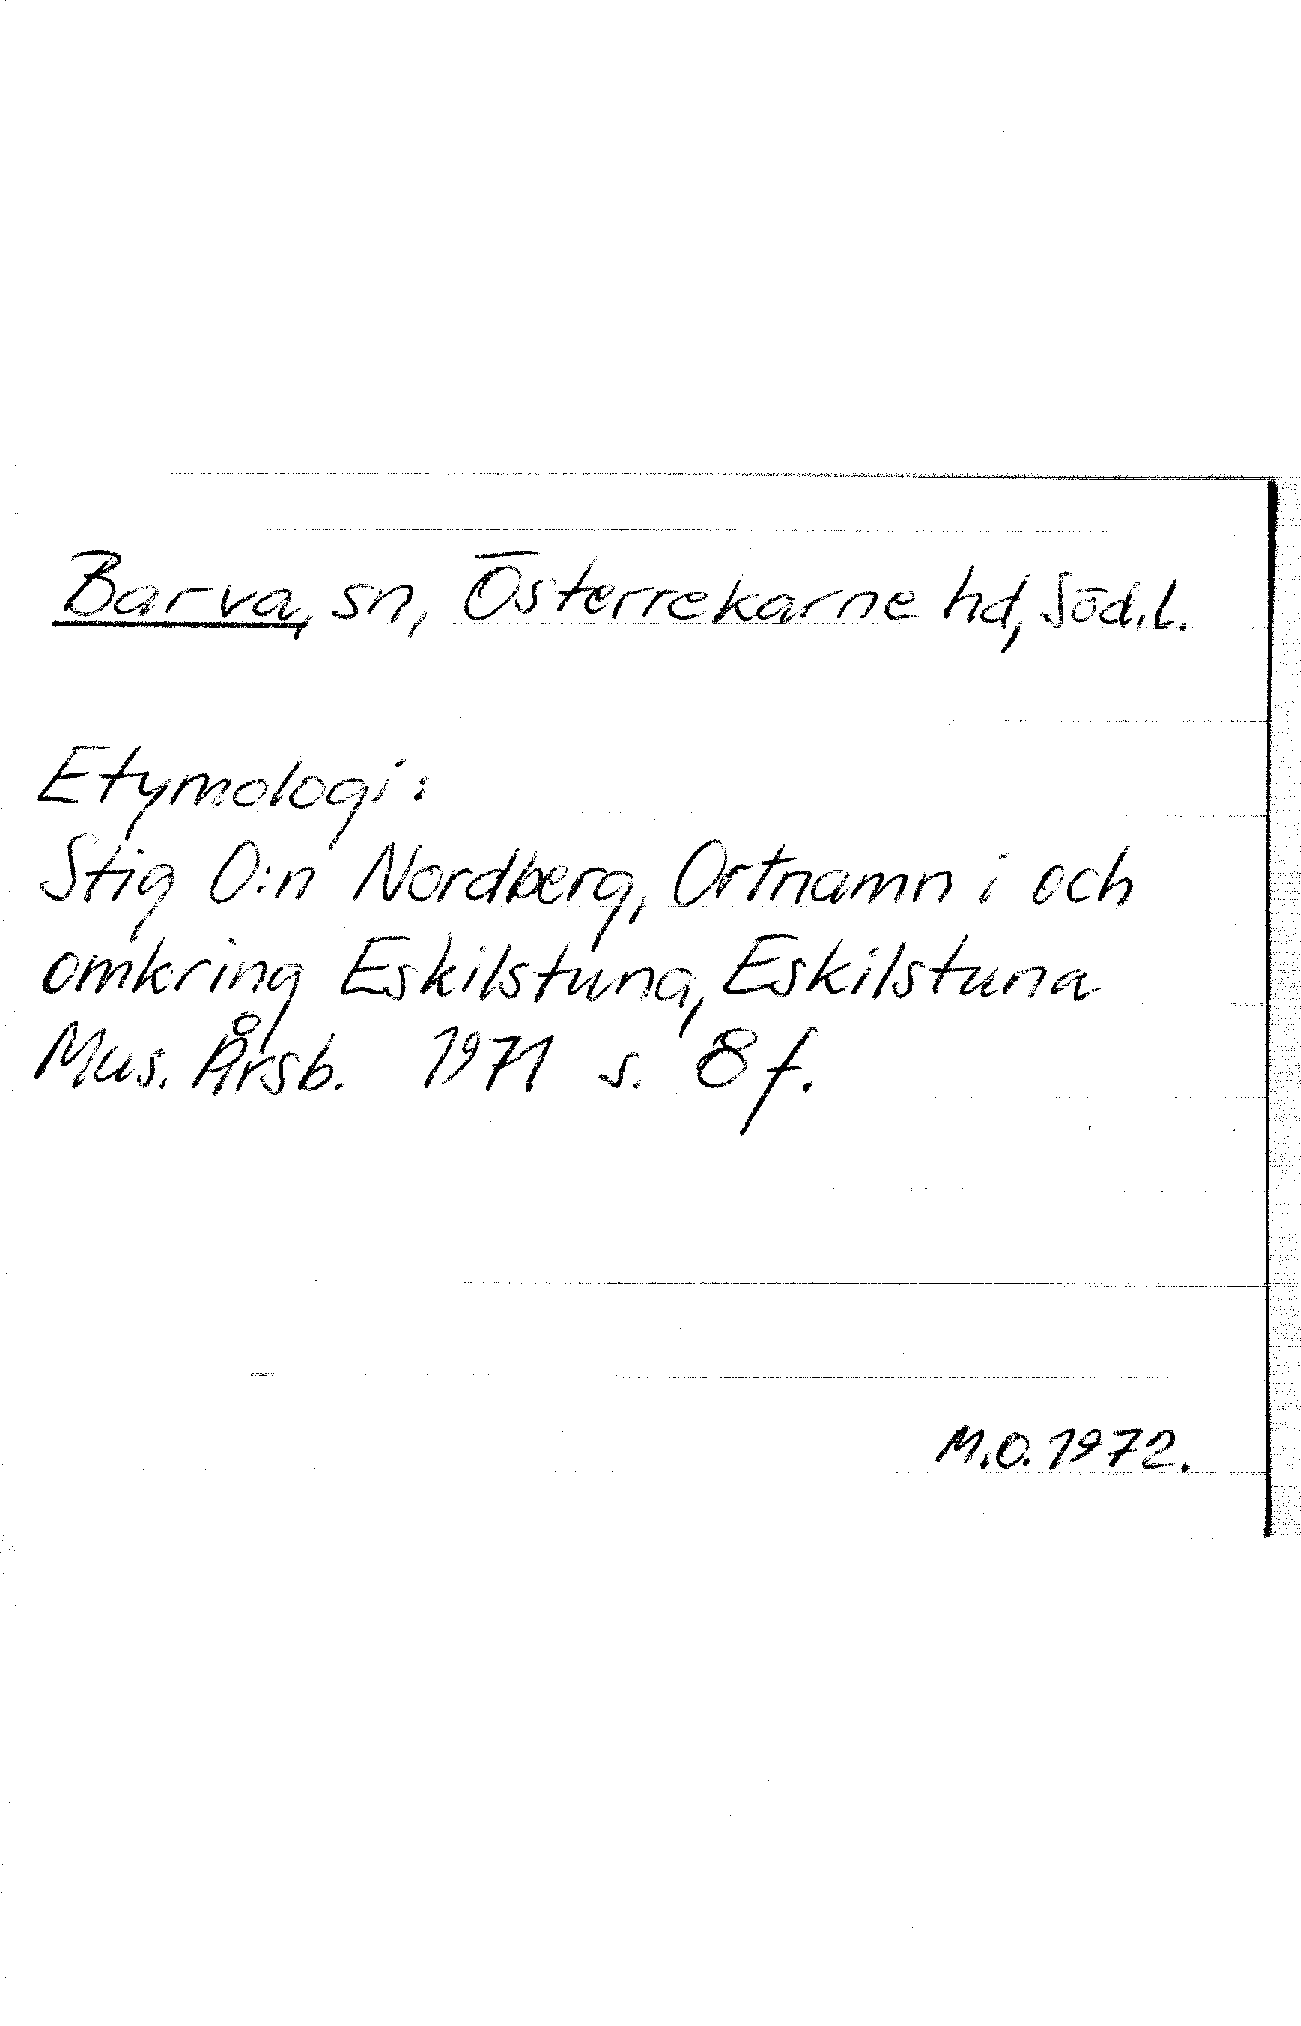 Barva, sn, Österrekarne hd, Söd.l.
Etymologi:
Stig O:n Nordberg, Ortnamn i och
omkring Eskilstuna, Eskilstuna
Mus. Årsb. 1971 s. 8 f.
M.O. 1972.